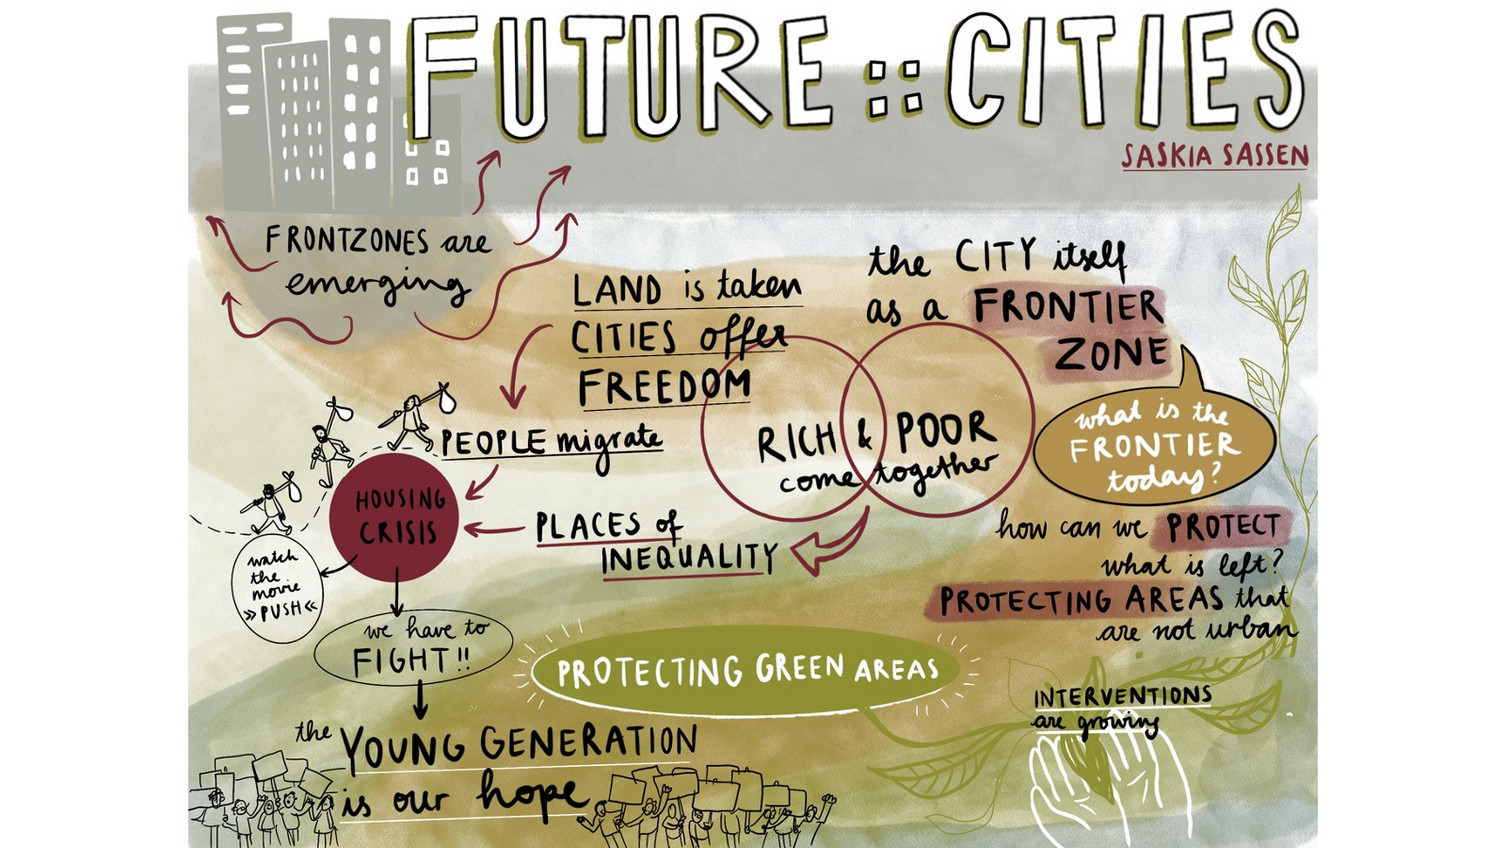 FUTURE :: CITIES
SASKIA SASSEN
FRONTZONES are
emerging
LAND is taken
CITIES offer
FREEDOM
the CITY itself
as a FRONTIER
ZONE
what is the
FRONTIER
today?
RICH & POOR
come together
PEOPLE migrate
HOUSING
CRISIS
PLACES of
INEQUALITY
how can we PROTECT
what is left?
PROTECTING AREAS that
are not urban
watch
the
movie
»PUSH«
we have to
FIGHT!!
PROTECTING GREEN AREAS
INTERVENTIONS
are growing
the YOUNG GENERATION
is our hope